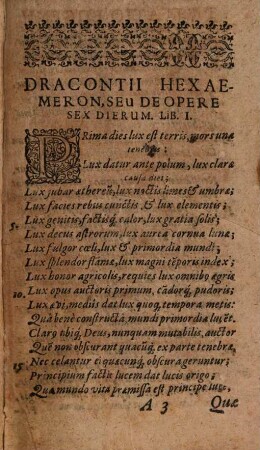 DRACONTII HEXAE-
MERON, SEU DE OPERE
SEX DIERUM. LIB. I.
PRima dies lux est terris, mors una
tenebris;
Lux datur ante polum, lux claræ
causa diei;
Lux jubar æthereũ, lux noctis limes & umbræ;
Lux facies rebus cunctis, & lux elementis;
5. Lux genitis, factisq́, calor, lux gratia solis;
Lux decus astrorum, lux aurea cornua lunæ;
Lux fulgor cœli, lux & primordia mundi;
Lux splendor flãmæ, lux magni tẽporis index;
Lux honor agricolis, requies lux omnibꝰ ægris
10. Lux ævi, mediũ dat lux quoq́, tempora metis:
Quã bene constructã, mundi primordia lucẽt.
Clarꝰ ubiq́, Deus, nunquam mutabilis, auctor
Quẽ non obscurant quacũq́, ex parte tenebræ,
15. Nec celantur ei quæcunq́, obscura geruntur;
Principium factis lucem dat lucis origo;
Quã mundo vita præmissa est principe luce,
A 3
Quæ